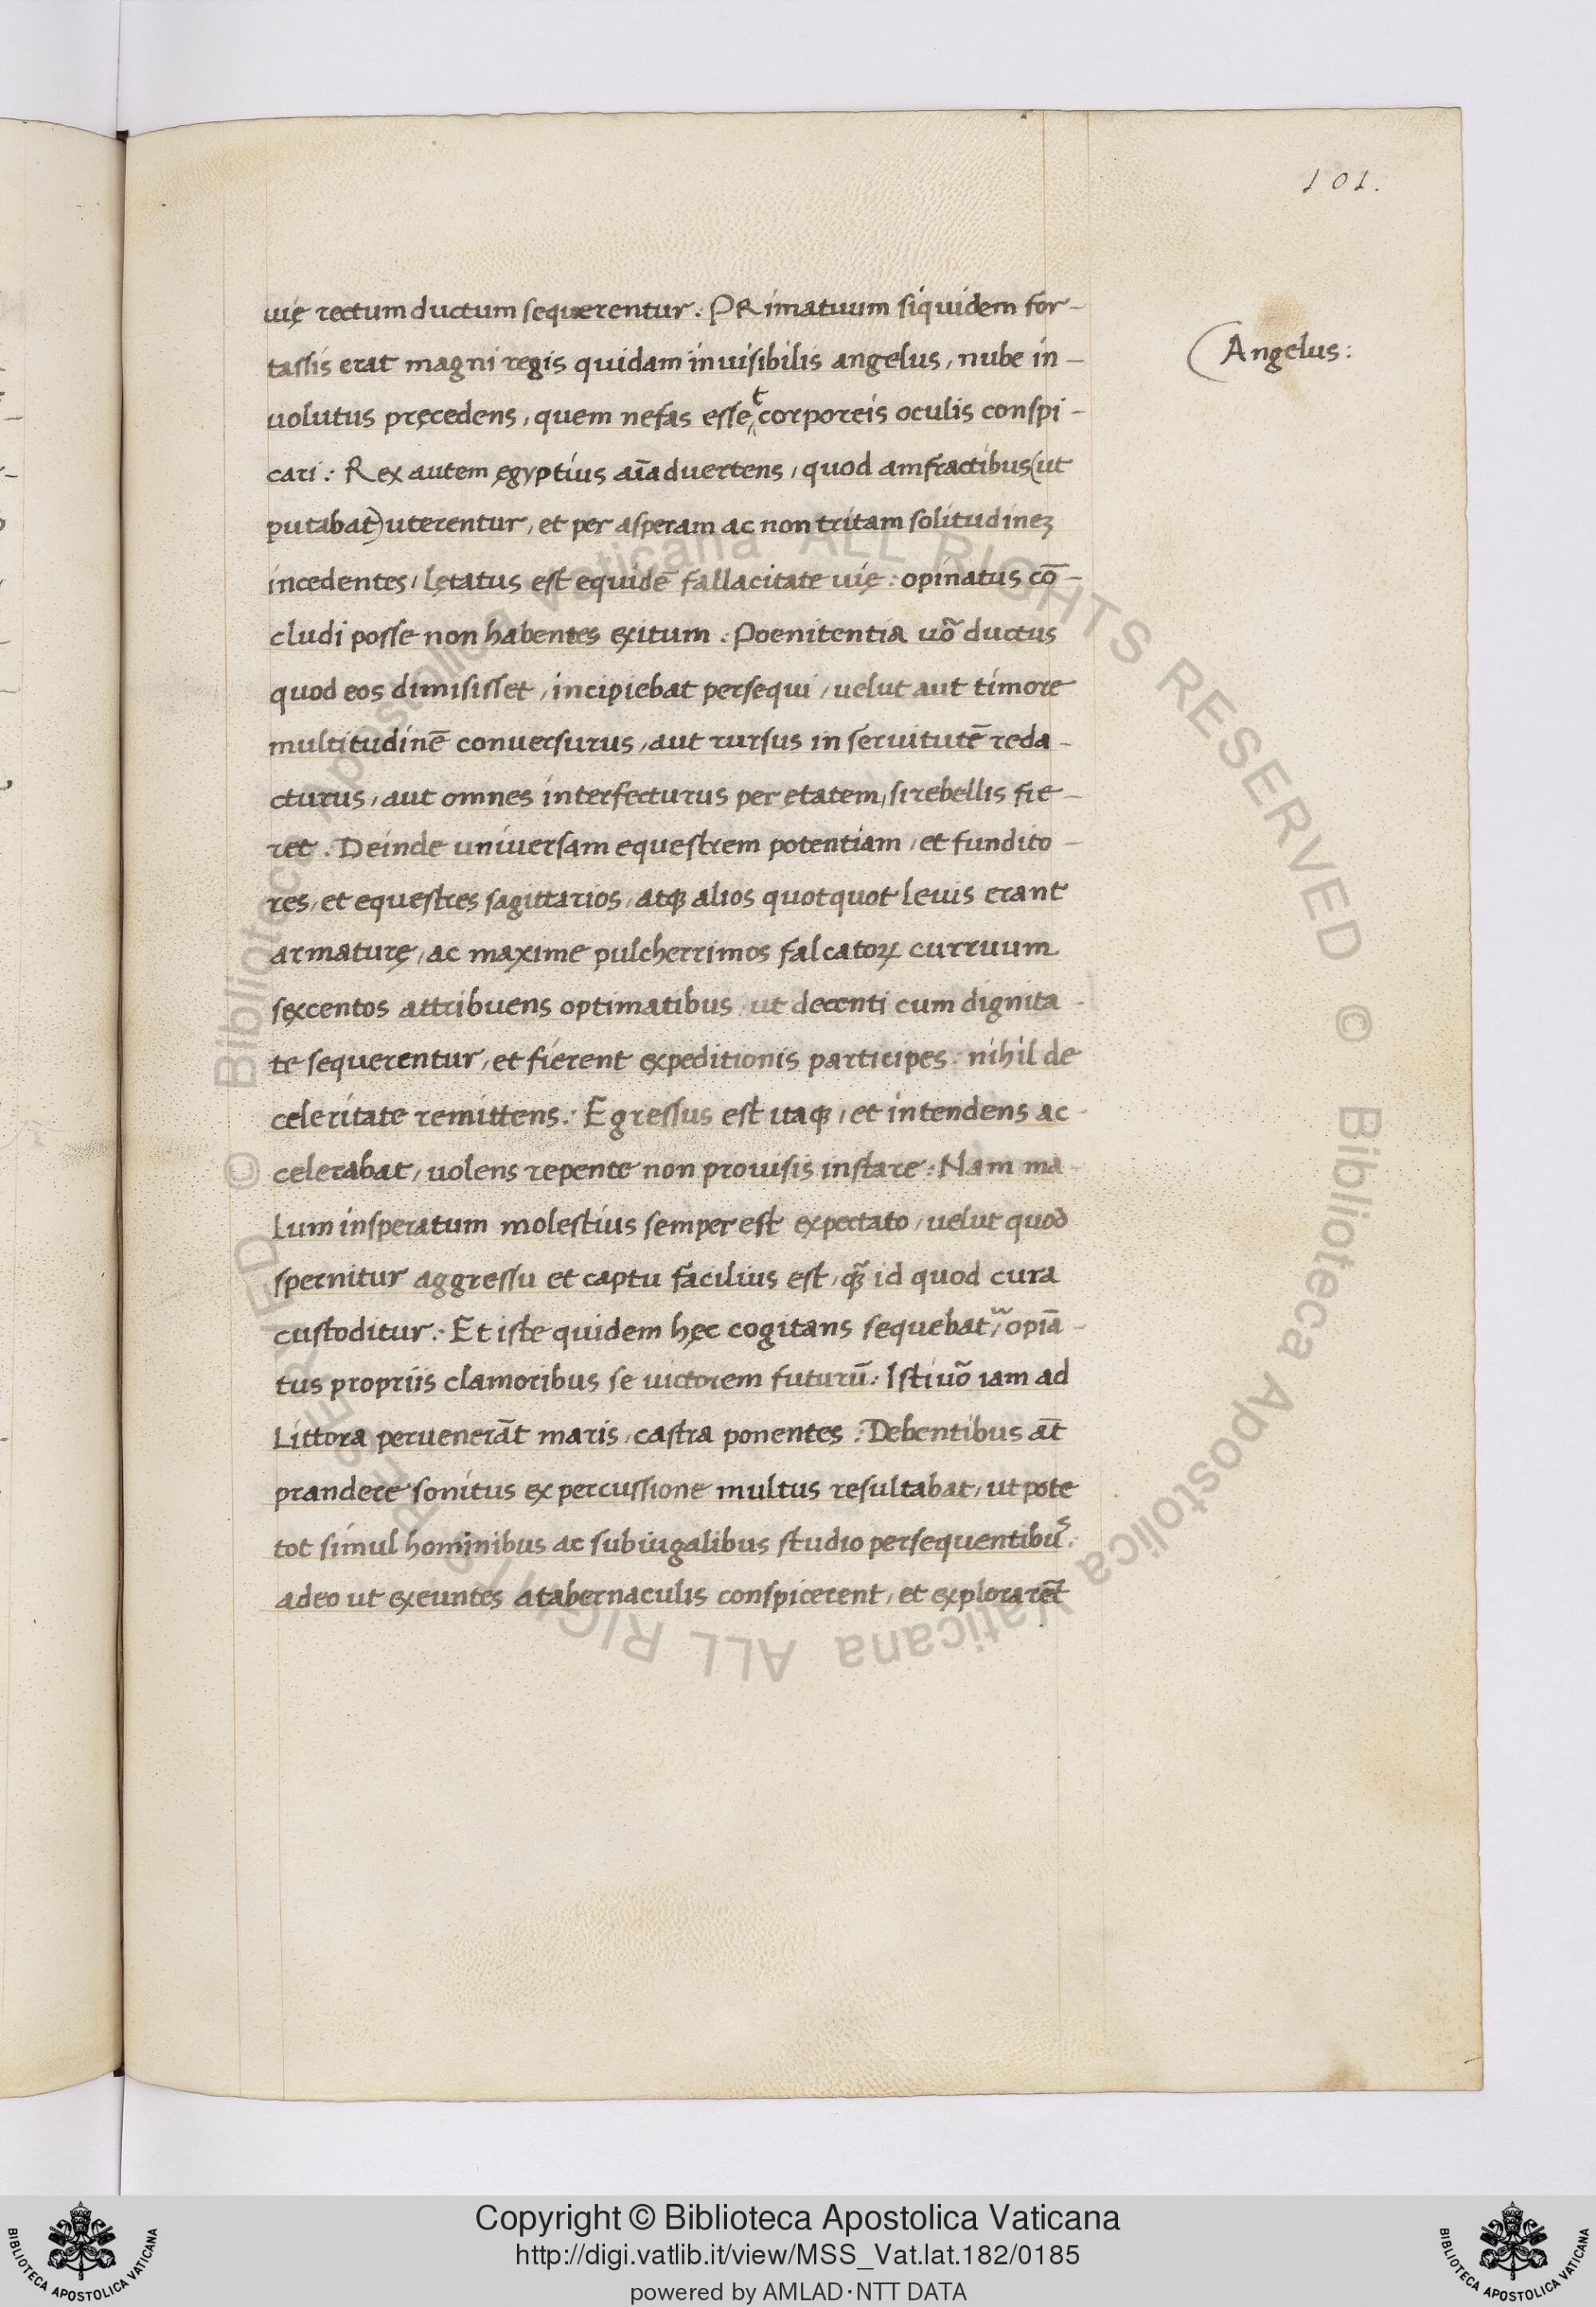 101.
uię rectum ductum sequerentur. PRimatuum siquidem for-
tassis erat magni regis quidam inuisibilis angelus, nube in-
Angelus:
uolutus pręcedens, quem nefas esset corporeis oculis conspi-
cari: Rex autem ęgyptius aīaduertens, quod amfractibus (ut
putabat) uterentur, et per asperam ac non tritam solitudineʒ
incedentes, lętatus est equidē fallacitate uię: opinatus cō-
cludi posse non habentes exitum. Poenitentia uõ ductus
quod eos dimisisset, incipiebat persequi, uelut aut timore
multitudinē conuersurus, aut rursus in seruitutē reda-
cturus, aut omnes interfecturus per ętatem, si rebellis fie-
ret. Deinde uniuersam equestrem potentiam, et fundito-
res, et equestres sagittarios, atqꝫ alios quotquot leuis erant
armaturę, ac maxime pulcherrimos falcatoꝝ curruum
sexcentos attribuens optimatibus, ut decenti cum dignita-
te sequerentur, et fierent expeditionis participes: nihil de
celeritate remittens: Egressus est itaqꝫ, et intendens ac-
celerabat, uolens repente non prouisis instare: Nam ma-
lum insperatum molestius semper est expectato, uelut quod
spernitur aggressu et captu facilius est, qꝫ̃ id quod cura
custoditur: Et iste quidem hęc cogitans sequebat᷑, opiā-
tus propriis clamoribus se uictorem futurū: Isti uõ iam ad
Littora peruenerāt maris, castra ponentes: Debentibus aūt
prandere sonitus ex percussione multus resultabat, ut pote
tot simul hominibus ac subiugalibus studio persequentibus:
adeo ut exeuntes a tabernaculis conspicerent, et explorarēt
© Biblioteca Apostolica Vaticana ALL RIGHTS RESERVED © Biblioteca Apostolica Vaticana ALL RIGHTS RESERVED
Copyright © Biblioteca Apostolica Vaticana
http://digi.vatlib.it/view/MSS_Vat.lat.182/0185
powered by AMLAD·NTT DATA
BIBLIOTECA APOSTOLICA VATICANA
BIBLIOTECA APOSTOLICA VATICANA